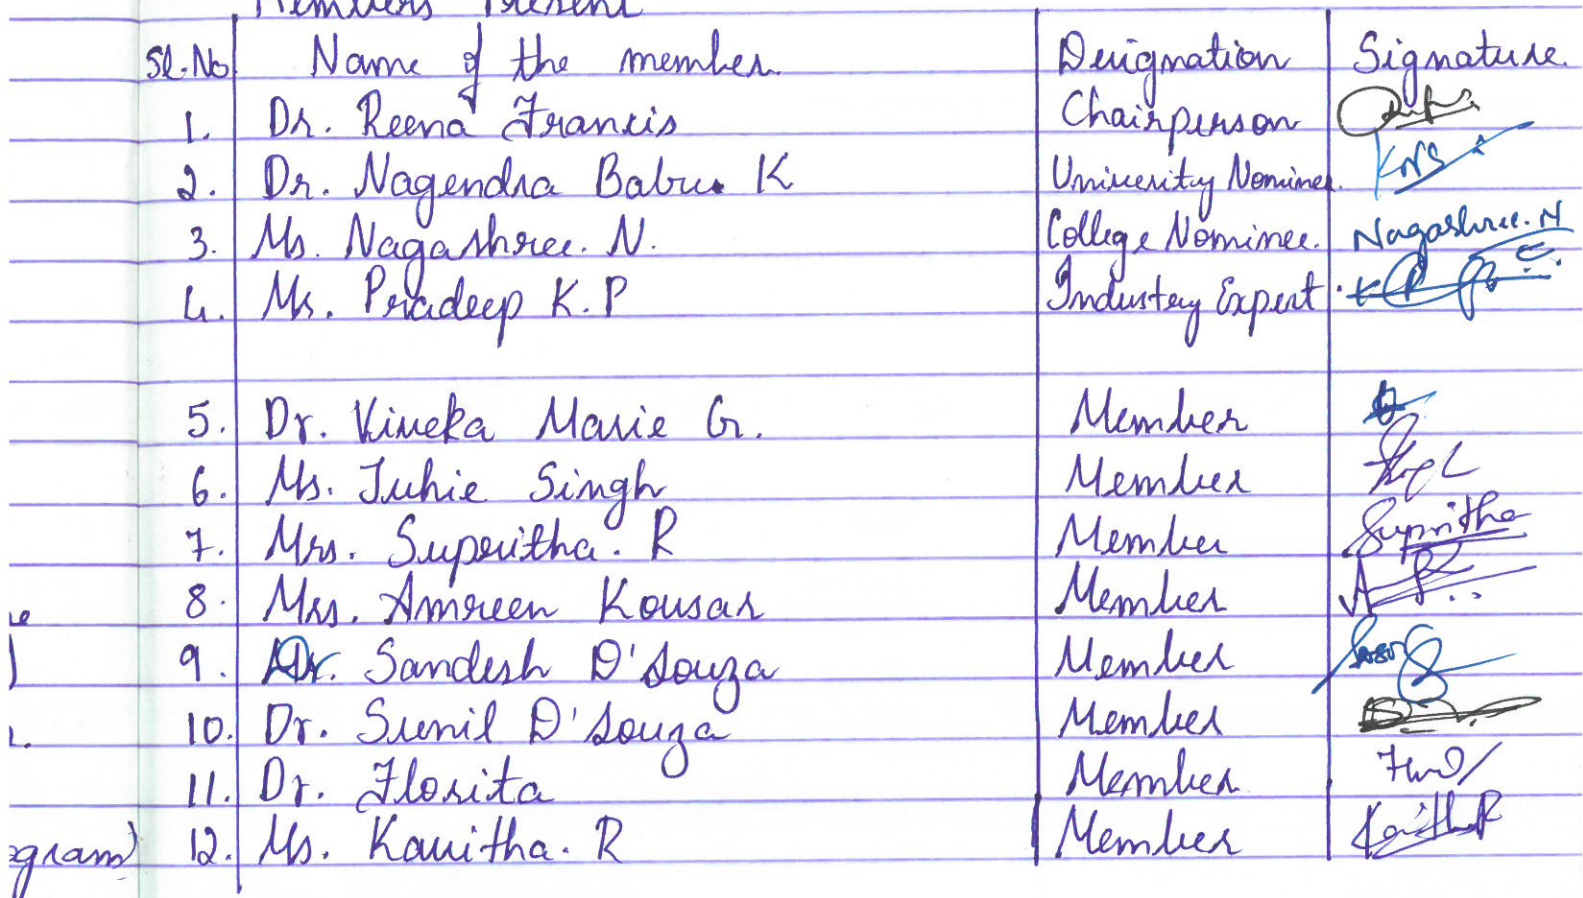 Members Present
Sl.No Name of the member. Designation Signature.
1. Dr. Reena Francis Chairperson
2. Dr. Nagendra Babu. K University Nominee. KNB
3. Ms. Nagashree. N. College Nominee. Nagashree. N
4. Mr. Pradeep K. P Industry Expert.
5. Dr. Viveka Marie G. Member
6. Ms. Juhie Singh Member
7. Mrs. Supritha. R Member Supritha
8. Mrs. Amreen Kousar Member
9. Dr. Sandesh D'Souza Member
10. Dr. Sunil D'Souza Member
11. Dr. Florita Member
ogram) 12. Ms. Kavitha. R Member Kavitha R